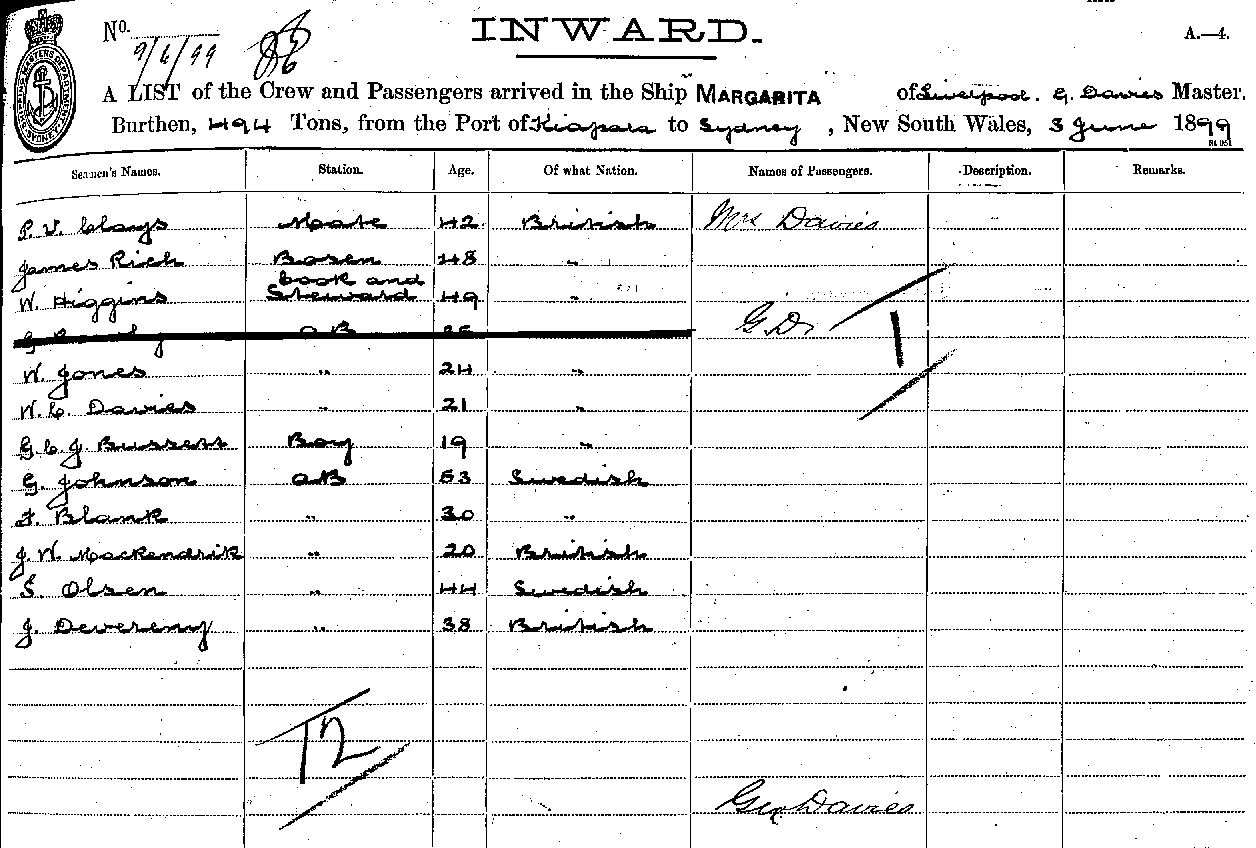 No.
9/6/99
INWARD.
A.—4.
A LIST of the Crew and Passengers arrived in the Ship MARGARITA of Liverpool. G. Davies Master,
Burthen, 494 Tons, from the Port of Kiapara to Sydney, New South Wales, 3 June 1899
Seamen's Names. Station. Age. Of what Nation. Names of Passengers. Description. Remarks.
P. V. Clays Mate 42 British Mrs Davies
James Rich Bosen 48 "
Cook and
W. Higgins Steward 49 "
G. AB G.D. 1
W. Jones " 24 "
W. C. Davies " 21 "
G. C. J. Bussess Boy 19 "
G. Johnson AB 53 Swedish
F. Blank " 30 "
J. W. MacKendrik " 20 British
S. Olsen " 44 Swedish
J. Devereny " 38 British
12
Geo Davies